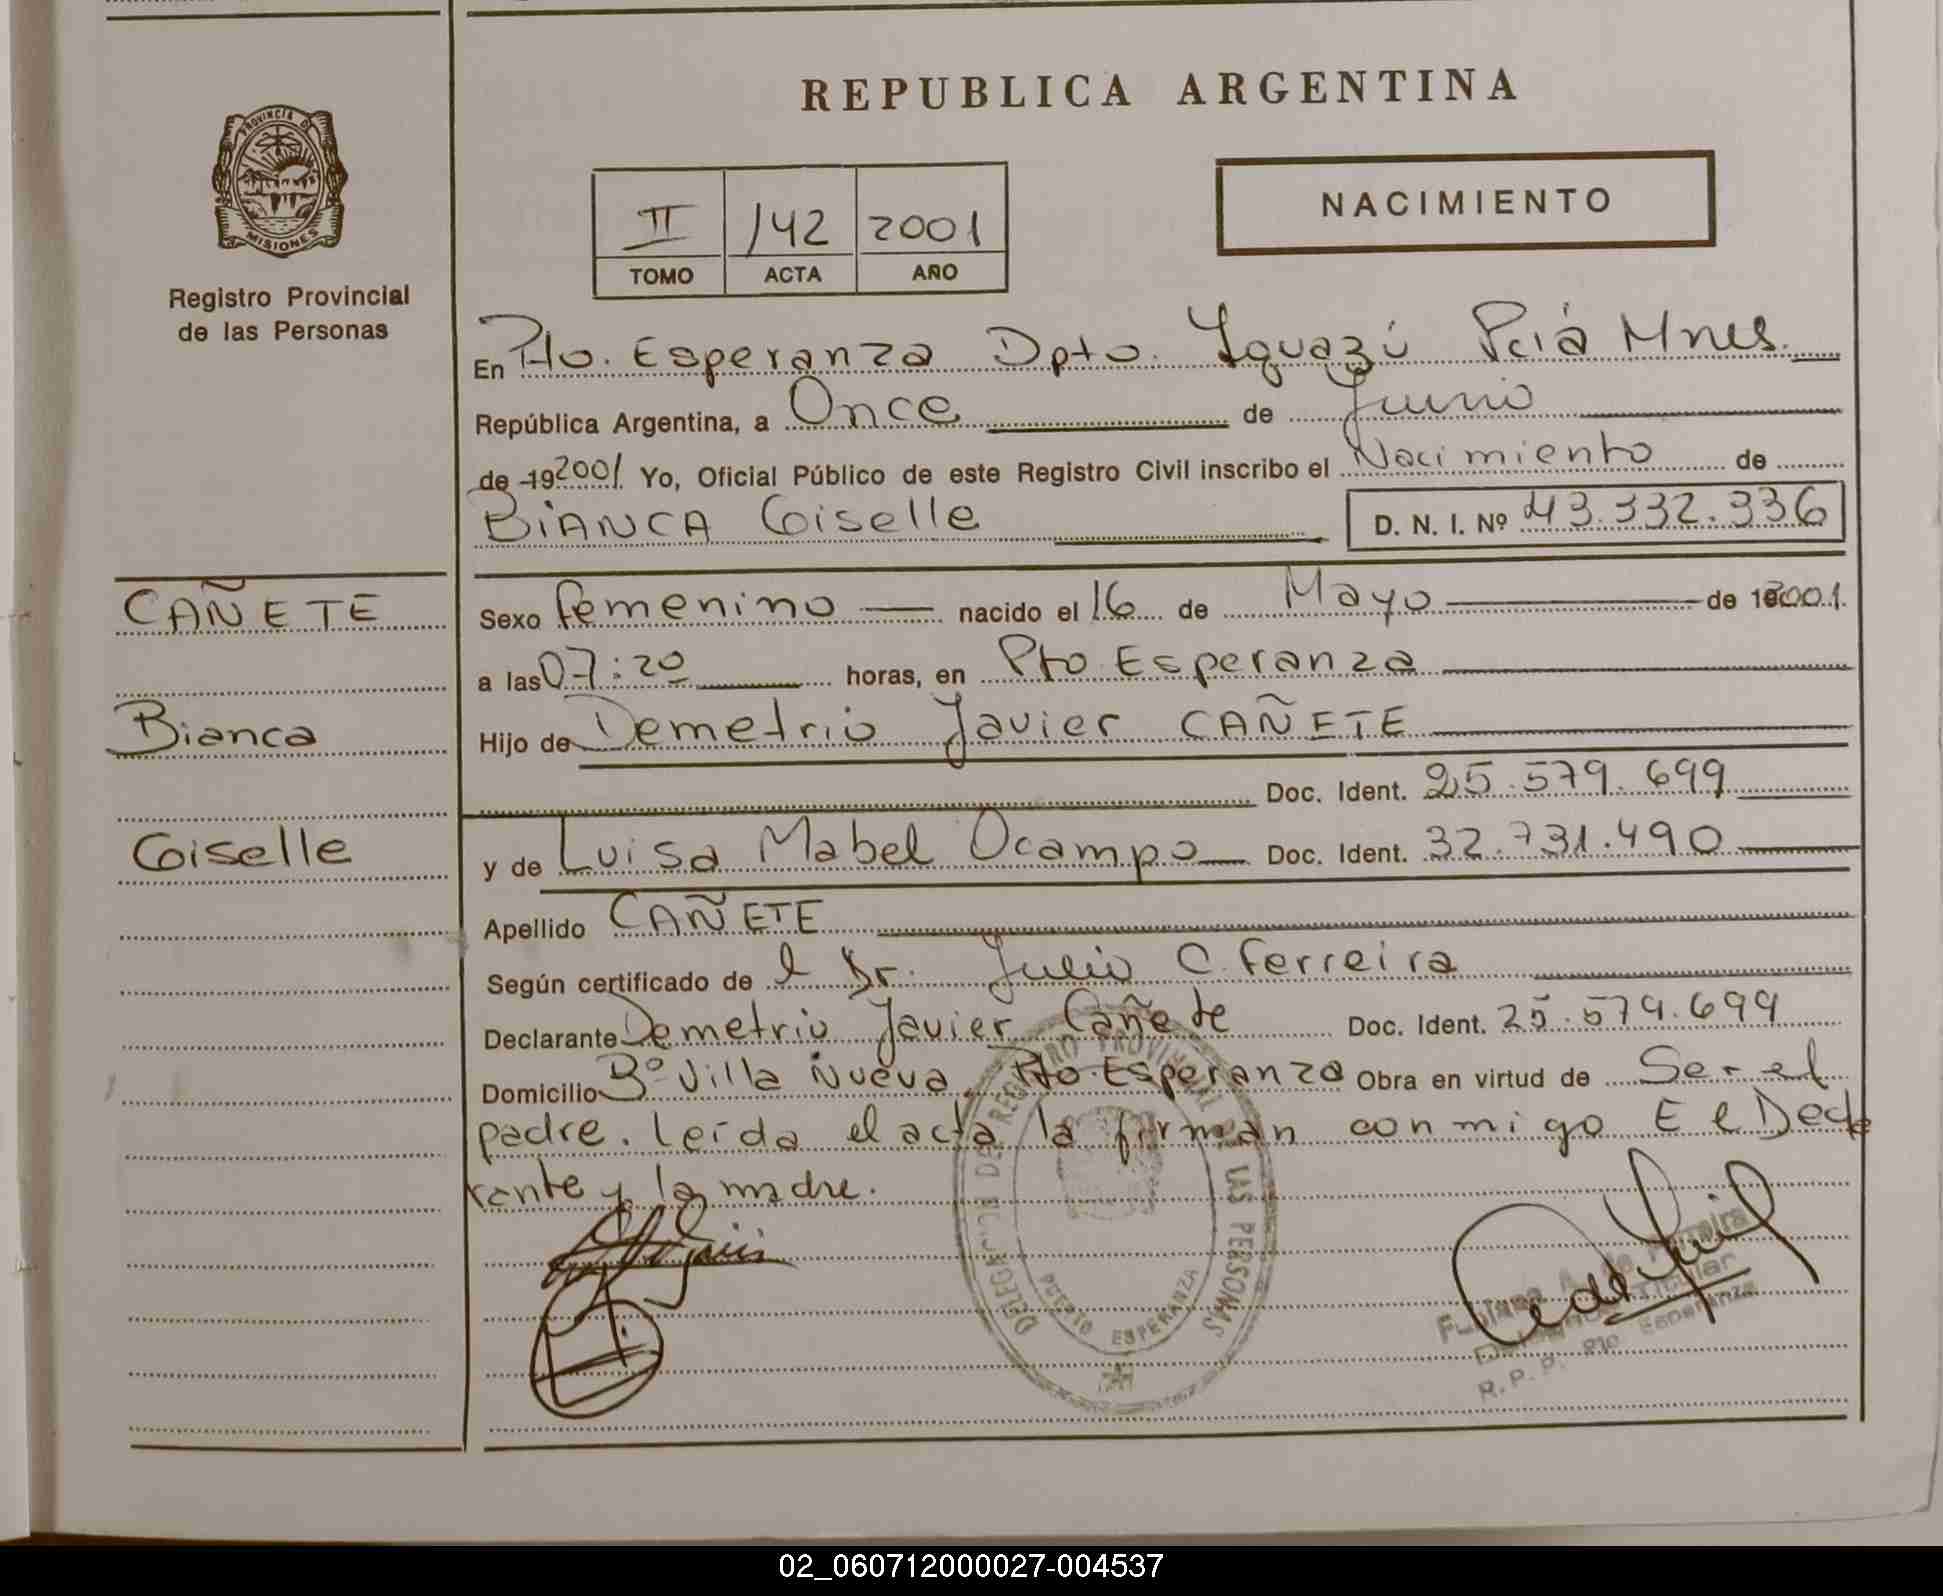 REPUBLICA ARGENTINA
PROVINCIA DE
MISIONES
Registro Provincial
de las Personas
II 142 2001
TOMO ACTA AÑO
NACIMIENTO
En Pto. Esperanza Dpto. Iguazú Pciá Mnes.
República Argentina, a Once de Junio
de 192001 Yo, Oficial Público de este Registro Civil inscribo el Nacimiento de
BIANCA Giselle D. N. I. Nº 43.332.336
CAÑETE
Bianca
Giselle
Sexo femenino nacido el 16 de Mayo de 2001.
a las 07:20 horas, en Pto Esperanza
Hijo de Demetrio Javier CAÑETE
Doc. Ident. 25.579.699
y de Luisa Mabel Ocampo Doc. Ident. 32.731.490
Apellido CAÑETE
Según certificado de l Dr. Julio C. Ferreira
Declarante Demetrio Javier Cañete Doc. Ident. 25.579.699
Domicilio Bº Villa Nueva, Pto. Esperanza Obra en virtud de Ser el
padre. Leída el acta la firman conmigo El Decla
rante y la madre.
DELEGACION REGISTRO PROVINCIAL DE LAS PERSONAS
PUERTO ESPERANZA
R. P. P. Pto. Esperanza
02_060712000027-004537